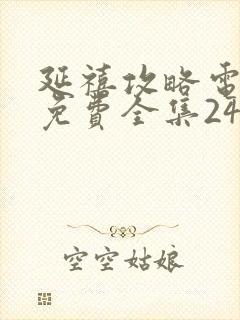 延禧攻略電
免費全集24
空空姑娘